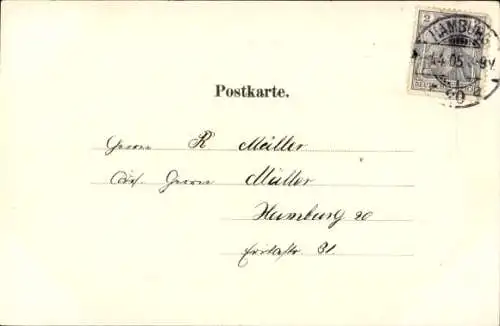 2
HAMBURG
4.4.05. 8-9V.
20
Postkarte.
Herrn R Müller
Adr. Herrn Müller
Hamburg 20
Erikastr. 81.